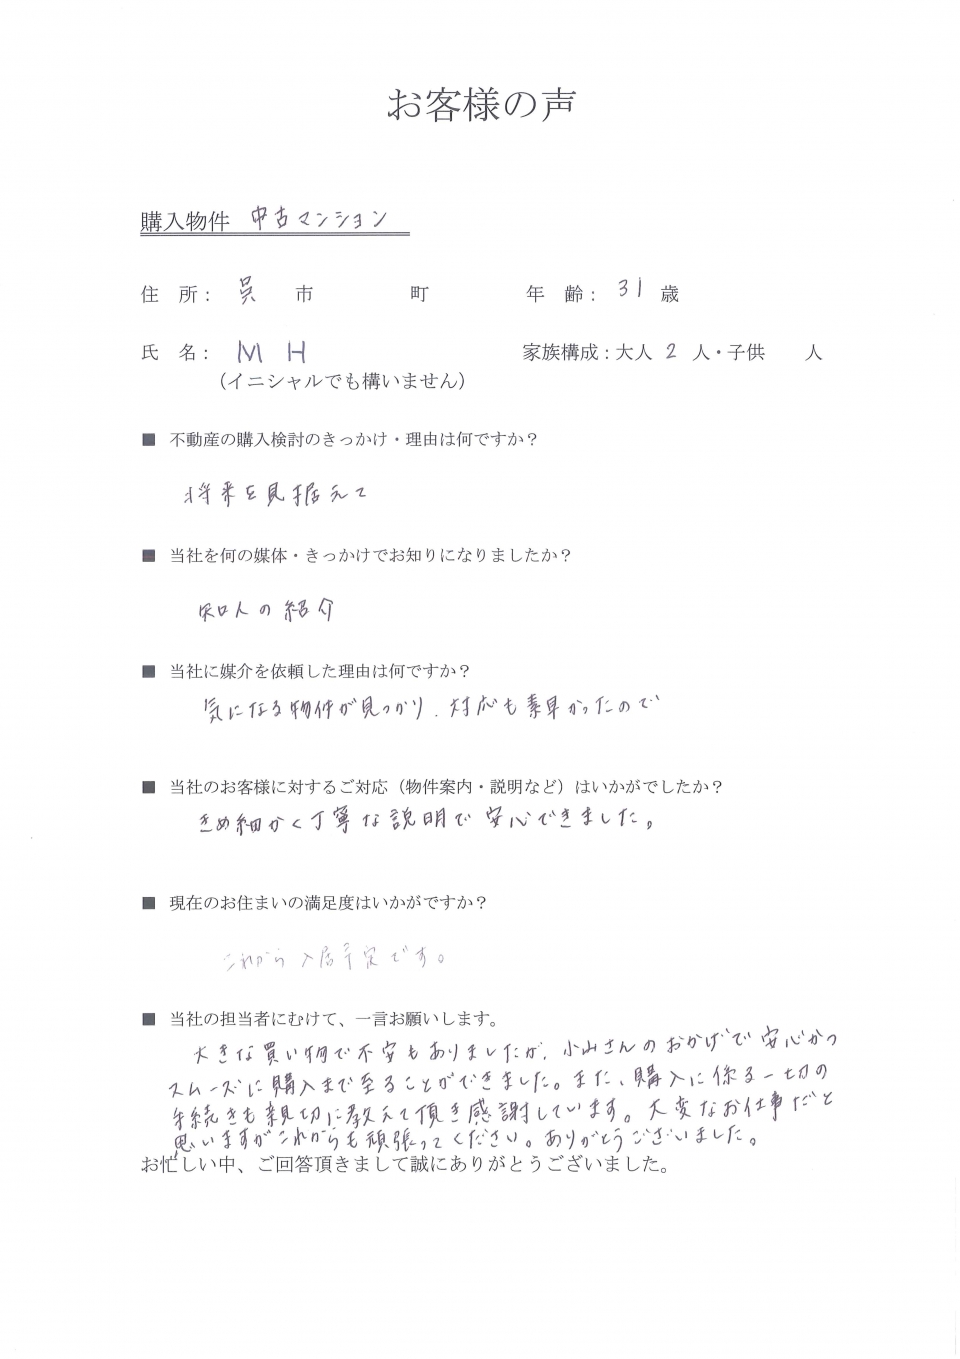 お客様の声
購入物件 中古マンション
住 所： 呉 市 町 年 齢： 31 歳
氏 名： M H 家族構成：大人 2 人・子供 人
（イニシャルでも構いません）
■ 不動産の購入検討のきっかけ・理由は何ですか？
将来を見据えて
■ 当社を何の媒体・きっかけでお知りになりましたか？
知人の紹介
■ 当社に媒介を依頼した理由は何ですか？
気になる物件が見つかり、対応も素早かったので
■ 当社のお客様に対するご対応（物件案内・説明など）はいかがでしたか？
きめ細かく丁寧な説明で安心できました。
■ 現在のお住まいの満足度はいかがですか？
これから入居予定です。
■ 当社の担当者にむけて、一言お願いします。
大きな買い物で不安もありましたが、小山さんのおかげで安心かつ
スムーズに購入まで至ることができました。また、購入に係る一切の
手続きも親切に教えて頂き感謝しています。大変なお仕事だと
思いますがこれからも頑張ってください。ありがとうございました。
お忙しい中、ご回答頂きまして誠にありがとうございました。